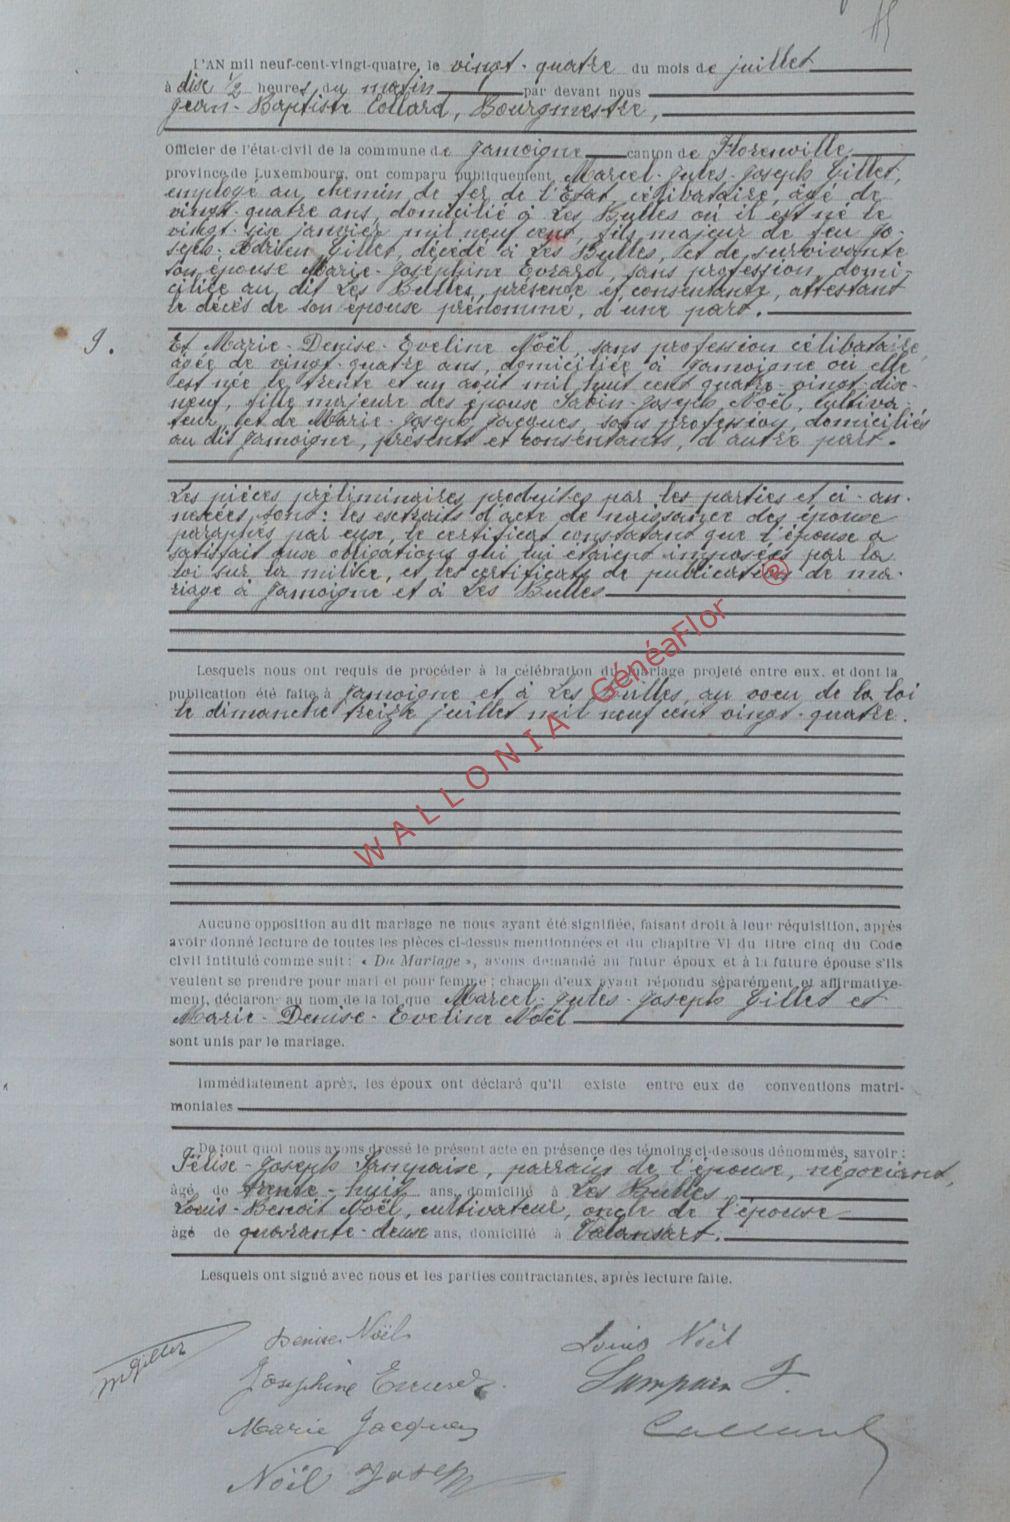 L'AN mil neuf-cent-vingt-quatre, le vingt-quatre du mois de juillet
à dix ½ heures du matin par devant nous
Jean-Baptiste Collard, Bourgmestre,
Officier de l'état-civil de la commune de Jamoigne canton de Florenville
province de Luxembourg, ont comparu publiquement Marcel-Jules-Joseph Gillet,
employé au chemin de fer de l'État, célibataire, âgé de
vingt-quatre ans, domicilié à Les Bulles où il est né le
vingt-six janvier mil neuf cent, fils majeur de feu Jo-
seph-Adrien Gillet, décédé à Les Bulles, et de survivante
son épouse Marie-Joséphine Evrard, sans profession, domi-
ciliée au dit Les Bulles, présente et consentante, attestant
le décès de son épouse prénommé, d'une part.
9.
Et Marie-Denise-Eveline Noël, sans profession célibataire,
âgée de vingt-quatre ans, domiciliée à Jamoigne où elle
est née le trente et un août mil huit cent quatre-vingt-dix-
neuf, fille majeure des épouse Sabin-Joseph Noël, cultiva-
teur, et de Marie-Joseph Jacques, sans profession, domiciliés
au dit Jamoigne, présents et consentants, d'autre part.
Les pièces préliminaires produites par les parties et ci-an-
nexées, sont: les extraits d'acte de naissance des épouse
paraphés par eux, le certificat constatant que l'épouse a
satisfait aux obligations qui lui étaient imposées par la
loi sur la milice, et les certificats de publication de ma-
riage à Jamoigne et à Les Bulles
Lesquels nous ont requis de procéder à la célébration du mariage projeté entre eux, et dont la
publication été faite à Jamoigne et à Les Bulles, au voeu de la loi
le dimanche treize juillet mil neuf cent vingt-quatre.
WALLONIA GénéaFlor ®
Aucune opposition au dit mariage ne nous ayant été signifiée, faisant droit à leur réquisition, après
avoir donné lecture de toutes les pièces ci-dessus mentionnées et du chapitre VI du titre cinq du Code
civil intitulé comme suit : « Du Mariage », avons demandé au futur époux et à la future épouse s'ils
veulent se prendre pour mari et pour femme ; chacun d'eux ayant répondu séparément et affirmative-
ment, déclarons au nom de la loi que Marcel-Jules-Joseph Gillet et
Marie-Denise-Eveline Noël
sont unis par le mariage.
Immédiatement après, les époux ont déclaré qu'il existe entre eux de conventions matri-
moniales
De tout quoi nous avons dressé le présent acte en présence des témoins ci-dessous dénommés, savoir :
Félix-Joseph, parrain de l'épouse, négociant,
âgé de trente-huit ans, domicilié à Les Bulles
Louis-Benoit Noël, cultivateur, oncle de l'épouse
âgé de quarante-deux ans, domicilié à Valansart.
Lesquels ont signé avec nous et les parties contractantes, après lecture faite.
Denise Noël Louis Noël
M Gillet
Joséphine Evrard
Marie Jacques Collard
Noël Joseph